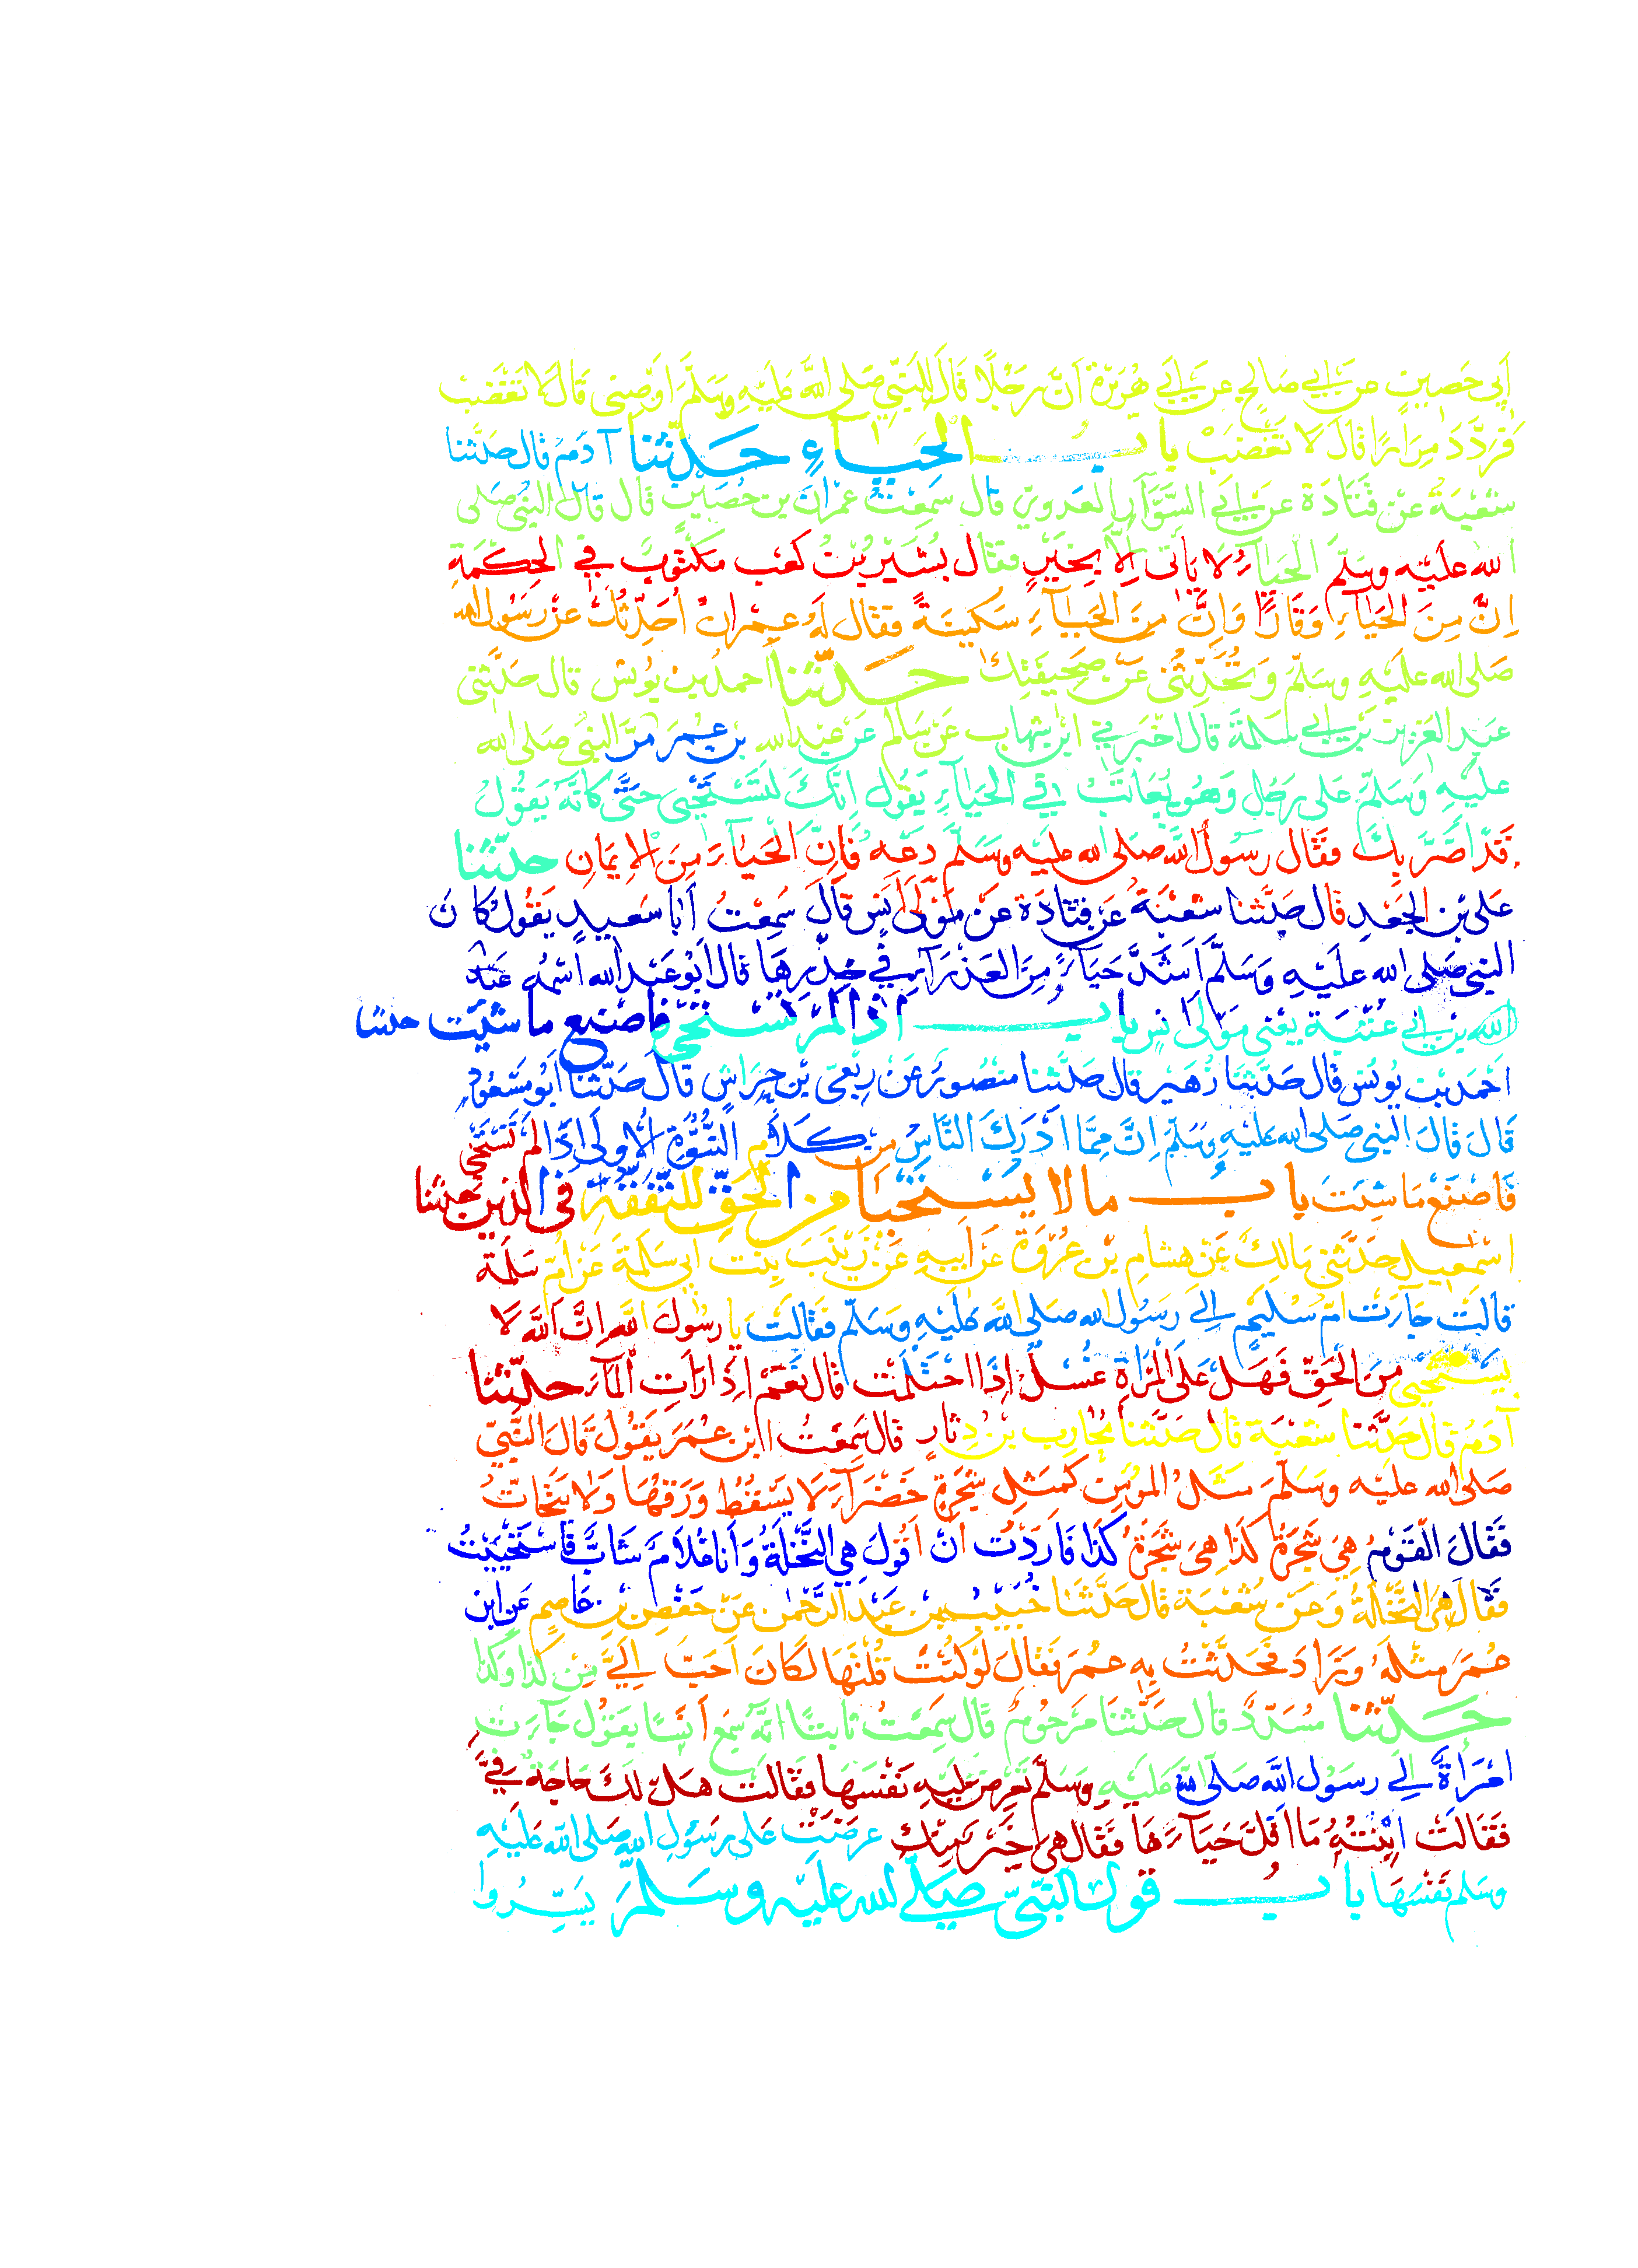 أَبِي حَصِينٍ عن أَبِي صَالِحٍ عن أَبِي هُرَيْرَةَ أَنَّ رَجُلًا قَالَ لِلنَّبِيِّ صَلى اللَّه عَلَيْهِ وَسَلَّمَ أَوْصِنِي قَالَ لَا تَغْضَبْ
فَرَدَّدَ مِرَارًا قَالَ لَا تَغْضَبْ بابُ الحَيَاءِ حَدَّثَنَا آدَمُ قال حَدَّثَنا
شُعْبَةُ عَنْ قَتَادَةَ عن أَبِي السَّوَّارِ العَدَوِيّ قال سَمِعْتُ عِمْرَانَ بن حُصَيْنٍ قال قال النبيُّ صَلى
الله عَلَيْه وسَلَّمَ الحَيَاءُ لا يَأْتِي إِلَّا بِخَيْرٍ فقال بُشَيْرُ بْنُ كَعْبٍ مَكْتُوبٌ في الحِكْمَةِ
إِنَّ مِنَ الحَيَاءِ وَقَارًا وَإِنَّ مِنَ الحَيَاءِ سَكِينَةً فقال لَهُ عِمْرَانُ أُحَدِّثُكَ عَنْ رَسُولِ الله
صَلى الله عَلَيْهِ وسَلّمَ وَتُحَدِّثُنِي عَنْ صَحِيفَتِكَ حَدَّثَنا أحمدُ بن يُونُسَ قال حَدَّثَنِي
عَبْد العَزِيزِ بْنُ أَبِي سَلَمَةَ قال أَخْبَرَنِي ابْنُ شِهَابٍ عَنْ سَالِمٍ عَنْ عَبْدِ الله بن عُمَرَ مَرَّ النبيُّ صَلى الله
عليْهِ وَسَلَّمَ عَلى رَجُلٍ وَهُو يُعَاتَبُ في الحَيَاءِ يَقُولُ إِنَّكَ لَتَسْتَحْيِي حَتَّى كَأَنَّهُ يَقُولُ
قَدْ أَضَرَّ بِكَ فقال رَسُولُ اللَّه صَلى الله عليه وسَلَّمَ دَعْهُ فَإِنَّ الحَيَاءَ مِنَ الإِيمَانِ حدّثنا
عَلى بْن الجَعْدِ قال حَدَّثنا شُعْبَةُ عَنْ قَتَادَةَ عَنْ مَوْلَى أَنَسٍ قَالَ سَمِعْتُ أَبَا سَعِيدٍ يَقُولُ كَانَ
النبي صَلى الله عَلَيْهِ وَسَلَّمَ أَشَدَّ حَيَاءً مِنَ العَذْرَاءِ فِي خِدْرِهَا قال أَبُو عَبْد الله اسْمُهُ عَبْد
الله بن أبي عُتْبَةَ يعني مَوْلَى أنس بابُ إذا لَمْ تَسْتَحْيِ فَاصْنَعْ مَا شِئْتَ حدثنا
أَحْمَدُ بن يُونُسَ قال حَدَّثَنَا زُهَيْر قال حَدَّثَنا مَنْصُورٌ عَنْ رِبْعِيّ بْنِ حِرَاشٍ قال حَدَّثَنَا أَبُو مَسْعُودٍ
قَالَ قَالَ النبي صَلى الله عَلَيْهِ وَسَلَّمَ إِنَّ مِمَّا أَدْرَكَ النَّاسُ من كَلَامِ النُّبُوَّةِ الأُولَى إِذَا لَمْ تَسْتَحْيِ
فَاصْنَعْ مَا شِئْتَ بابُ ما لا يُسْتَحْيَا مِنَ الْحَقِّ لِلتَّفَقُّهِ في الدِّينِ حدثنا
إِسْمٰعِيلُ حَدَّثَنِي مَالِكٌ عَنْ هِشَامِ بْنِ عُرْوَةَ عَنْ أَبِيهِ عَنْ زَيْنَبَ بِنْتِ أَبِي سَلَمَةَ عَنْ أُمّ سَلَمَة
قالَتْ جَاءَتْ أُمّ سُلَيْمٍ إِلَى رَسُول الله صَلى اللَّه عَلَيْهِ وَسَلّمَ فَقَالَتْ يا رسُولَ اللَّه إِنَّ اللَّهَ لَا
يَسْتَحْيِي مِنَ الْحَقِّ فَهَلْ عَلَى الْمَرْأَةِ غُسْلٌ إِذَا احْتَلَمَتْ قال نَعَمْ إِذَا رَأَتِ الْمَاءَ حدّثنا
آدَمُ قال حَدَّثَنا شُعْبَة قال حَدَّثَنا مُحَارِب بْن دِثَارٍ قال سَمِعْتُ ابن عُمَرَ يَقُولُ قَالَ النَّبِيّ
صَلى الله عليْه وسَلَّمَ مَثَلُ المُؤْمِنِ كَمَثَلِ شَجَرَةٍ خَضْرَاءَ لَا يَسْقُطُ وَرَقُهَا وَلَا يَتَحَاتُّ
فَقَالَ القَوْمُ هِيَ شَجَرَةُ كَذَا هِيَ شَجَرَةُ كَذَا فَأَرَدْتُ أَنْ أَقُولَ هِيَ النَّخْلَةُ وَأَنَا غُلَامٌ شَابٌّ فَاسْتَحْيَيْتُ
فَقَالَ هِيَ النَّخْلَةُ وَعَنْ شُعْبَةَ قال حَدَّثَنَا خُبَيْبُ بن عَبْد الرَّحْمٰنِ عَنْ حَفْصِ بْنِ عَاصِمٍ عَنِ ابْن
عُمَرَ مِثْلَهُ وَزَادَ فَحَدَّثْتُ بِهِ عُمَرَ فَقَالَ لَوْ كُنْتَ قُلْتَهَا لَكَانَ أَحَبَّ إِلَيَّ مِنْ كَذَا وَكَذَا
حَدَّثَنَا مُسَدَّدٌ قال حَدَّثَنَا مَرْحُومٌ قَالَ سَمِعْتُ ثَابتًا أَنَّهُ سَمِعَ أَنَسًا يَقُولُ جَاءَتْ
امْرَأَةٌ إِلَى رسُول اللَّه صَلى الله عَلَيْهِ وسَلَّمَ تَعْرِضُ عَلَيْهِ نَفْسَهَا فَقَالَتْ هَلْ لَكَ حَاجَةٌ فِيَّ
فَقَالَتْ ابْنَتُهُ مَا أَقَلَّ حَيَاءَهَا فَقَال هِيَ خَيْرٌ مِنْكِ عَرَضَتْ عَلى رَسُولِ الله صَلى اللَّه عَلَيْهِ
وسَلم نَفْسَهَا بابُ قول النَّبِيّ صَلى الله عليْه وسَلَّمَ يَسِّرُوا